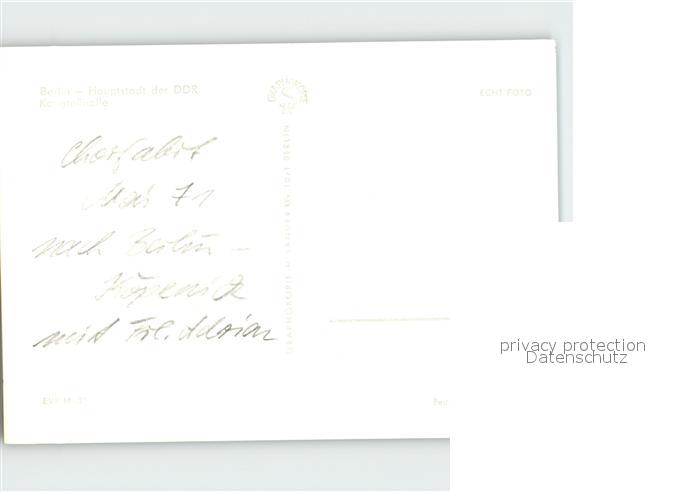 Berlin – Hauptstadt der DDR
Kongreßhalle
ECHT FOTO
Chorfahrt
Mai 71
nach Berlin –
Köpenick
mit Frl. Adrian
GRAPHOKOPIE H. SANDER KG 1071 BERLIN
EVP M -,25
privacy protection
Datenschutz